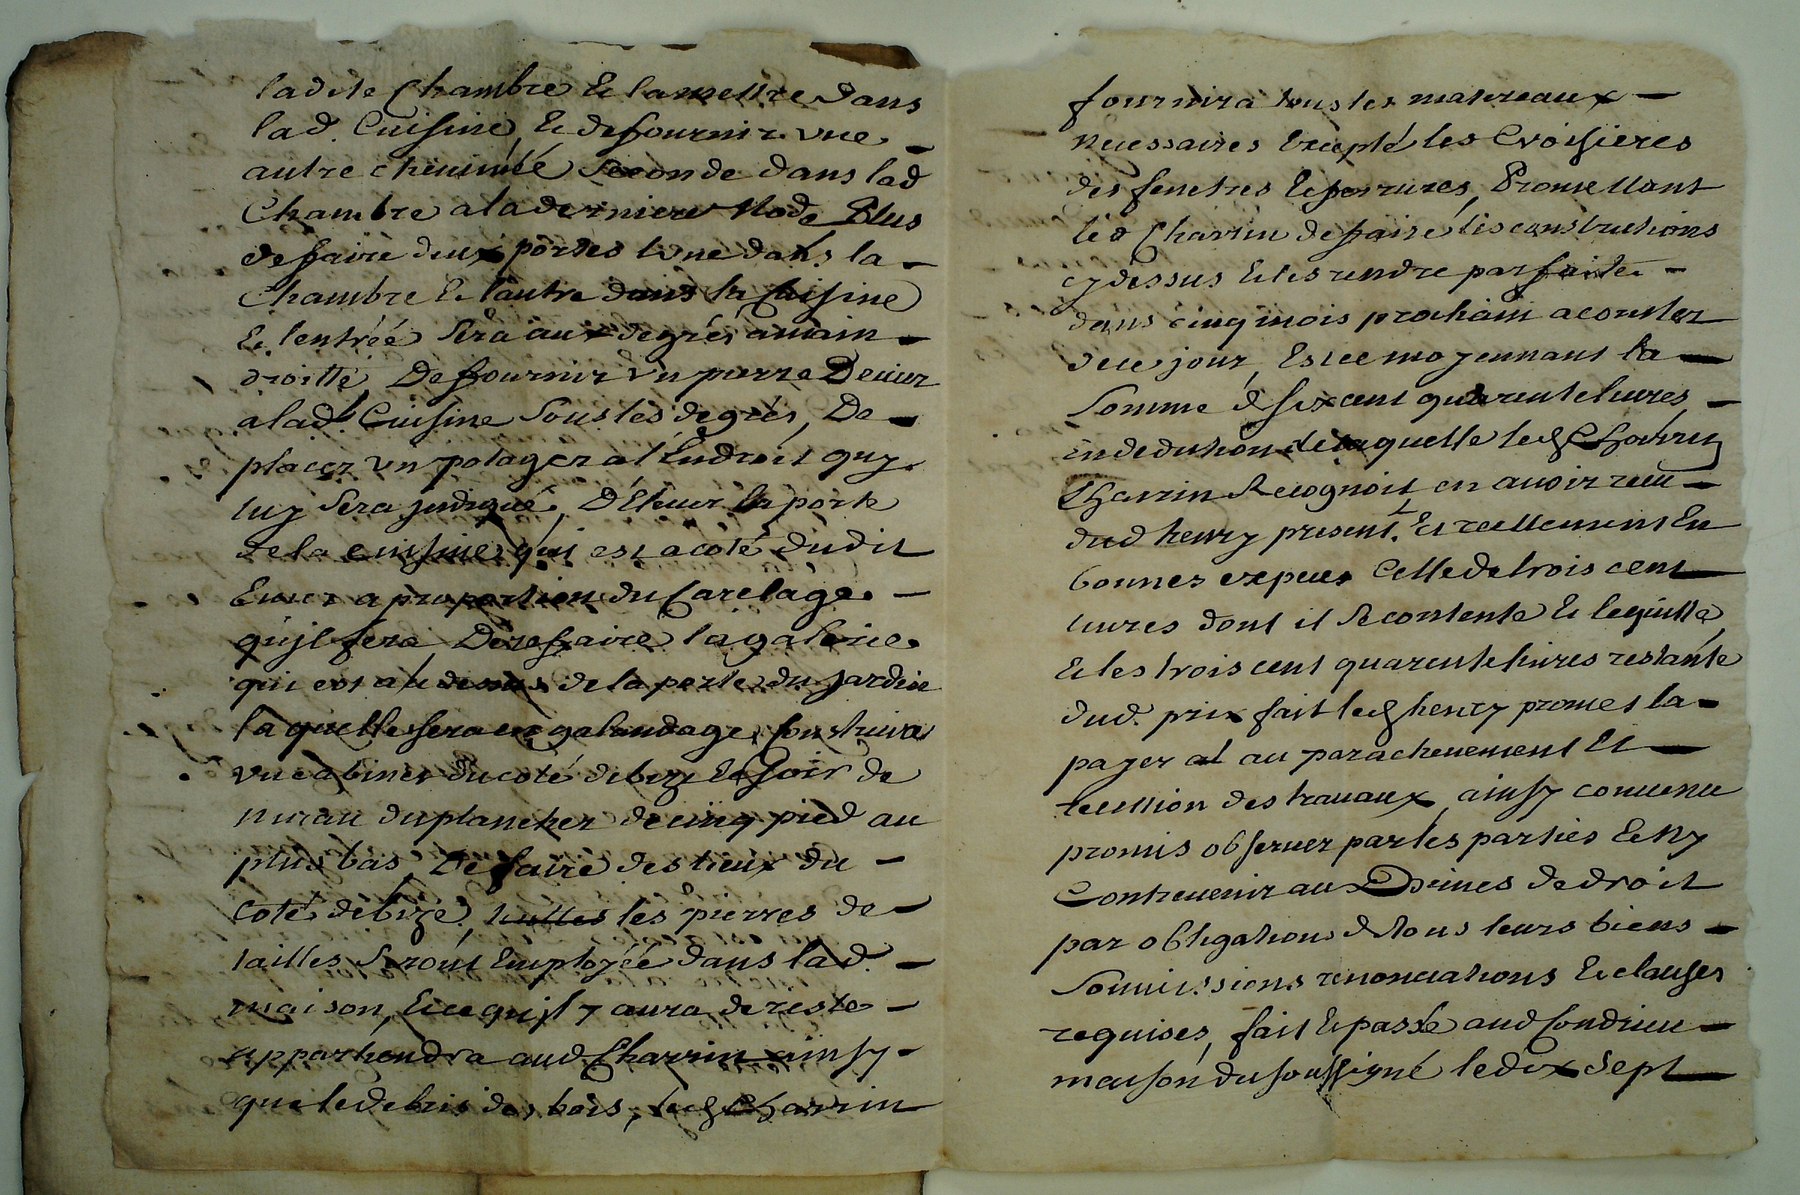 ladite Chambre Et la mettre dans
lad. Cuisine, Et de fournir vne
autre cheminéé seconde dans lad
Chambre a la derniere Mode Plus
de faire deux portes l'vne dans la
Chambre Et l'autre dans la Cuisine
Et l'entréé sera aux degrés a main
droitte, De fournir vn pierre D'euier
a lad. Cuisine sous les degrés, De
placer vn potager a l'Endroit quy
luy sera jndiqué, D'Eleuer la porte
de la cuisine qui est a coté dudit
Euier a proportion du Carelage
qu'jl fera De refaire la galerie
qui est au dessus de la porte du jardin
laquelle sera en galandage, Construira
vn cabinet du coté de bize Et soir de
niueau du plancher de cinq pied au
plus bas, De faire des lieux du
coté de bize, touttes les pierres de
tailles seront Employéé dans lad.
maison, Et ce qu'jl y aura de reste
appartiendra aud Charrin ainsy
que le debris des bois, led Charrin
fournira tous les matereaux
necessaires Excepté les Croisieres
des fenetres Et ferrures, Promettant
led Charrin de faire les constructions
cy dessus Et les rendre parfaite
dans cinq mois prochain a conter
de ce jour, Est ce moyennant la
somme de six cent quarente liures,
en deduction de laquelle led Charrin
Charrin Recognoit en auoir receu
dud henry present, Et reellement En
bonnes expeces Celle de trois cent
liures dont il se contente Et le quitte
Et les trois cent quarente liures restante
dud. prix fait led henry promet la
payer al au parachevement Et
recettion des trauaux, ainsy conuenu
promis obseruer par les parties Et Ny
Contreuenir aux Peines de droit
par obligations de tous leurs biens
soumissions renonciations Et clauses
requises, fait Et passé aud Condrieu
maison du soussigné le dix sept